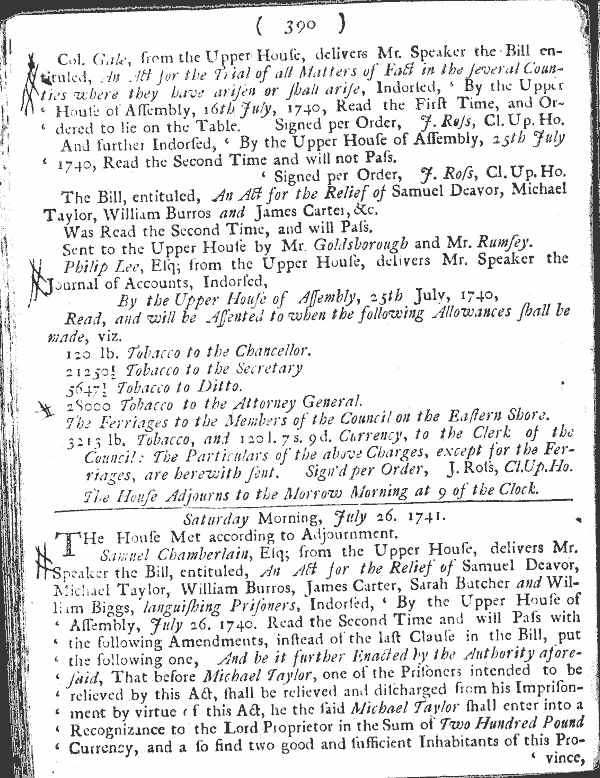 ( 390 )
Col. Gale, from the Upper Houſe, delivers Mr. Speaker the Bill en-
tituled, An Act for the Trial of all Matters of Fact in the ſeveral Coun-
ties where they have ariſen or ſhall ariſe, Indorſed, ‘ By the Upper
‘ Houſe of Aſſembly, 16th July, 1740, Read the Firſt Time, and Or-
‘ dered to lie on the Table. Signed per Order, J. Roſs, Cl. Up. Ho.
And further Indorſed, ‘ By the Upper Houſe of Aſſembly, 25th July
‘ 1740, Read the Second Time and will not Paſs.
‘ Signed per Order, J. Roſs, Cl. Up. Ho.
The Bill, entituled, An Act for the Relief of Samuel Deavor, Michael
Taylor, William Burros and James Carter, &c.
Was Read the Second Time, and will Paſs.
Sent to the Upper Houſe by Mr. Goldsborough and Mr. Rumſey.
Philip Lee, Eſq; from the Upper Houſe, delivers Mr. Speaker the
Journal of Accounts, Indorſed,
By the Upper Houſe of Aſſembly, 25th July, 1740,
Read, and will be Aſſented to when the following Allowances ſhall be
made, viz.
120 lb. Tobacco to the Chancellor.
21250½ Tobacco to the Secretary
5647½ Tobacco to Ditto.
28000 Tobacco to the Attorney General.
The Ferriages to the Members of the Council on the Eaſtern Shore.
3213 lb. Tobacco, and 120 l. 7 s. 9d. Currency, to the Clerk of the
Council: The Particulars of the above Charges, except for the Fer-
riages, are herewith ſent. Sign'd per Order, J. Roſs, Cl. Up. Ho.
The Houſe Adjourns to the Morrow Morning at 9 of the Clock.
Saturday Morning, July 26. 1741.
THe Houſe Met according to Adjournment.
Samuel Chamberlain, Eſq; from the Upper Houſe, delivers Mr.
Speaker the Bill, entituled, An Act for the Relief of Samuel Deavor,
Michael Taylor, William Burros, James Carter, Sarah Batcher and Wil-
liam Biggs, languiſhing Priſoners, Indorſed, ‘ By the Upper Houſe of
‘ Aſſembly, July 26. 1740. Read the Second Time and will Paſs with
‘ the following Amendments, inſtead of the laſt Clauſe in the Bill, put
‘ the following one, And be it further Enacted by the Authority afore-
‘ ſaid, That before Michael Taylor, one of the Priſoners intended to be
‘ relieved by this Act, ſhall be relieved and diſcharged from his Impriſon-
‘ ment by virtue of this Act, he the ſaid Michael Taylor ſhall enter into a
‘ Recognizance to the Lord Proprietor in the Sum of Two Hundred Pound
‘ Currency, and a ſo find two good and ſufficient Inhabitants of this Pro-
‘ vince,